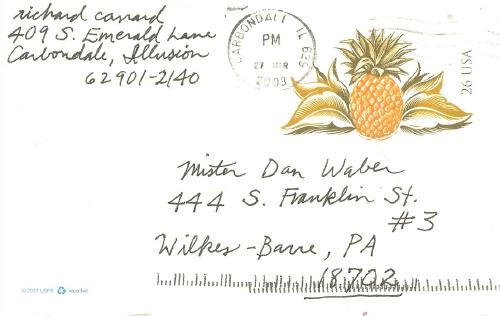 richard canard
409 S. Emerald Lane
Carbondale, Illusion
62901-2140
CARBONDALE IL 629
PM
27 MAR
2008
26 USA
Mister Dan Waber
444 S. Franklin St.
#3
Wilkes-Barre, PA
18702
© 2007 USPS recycled